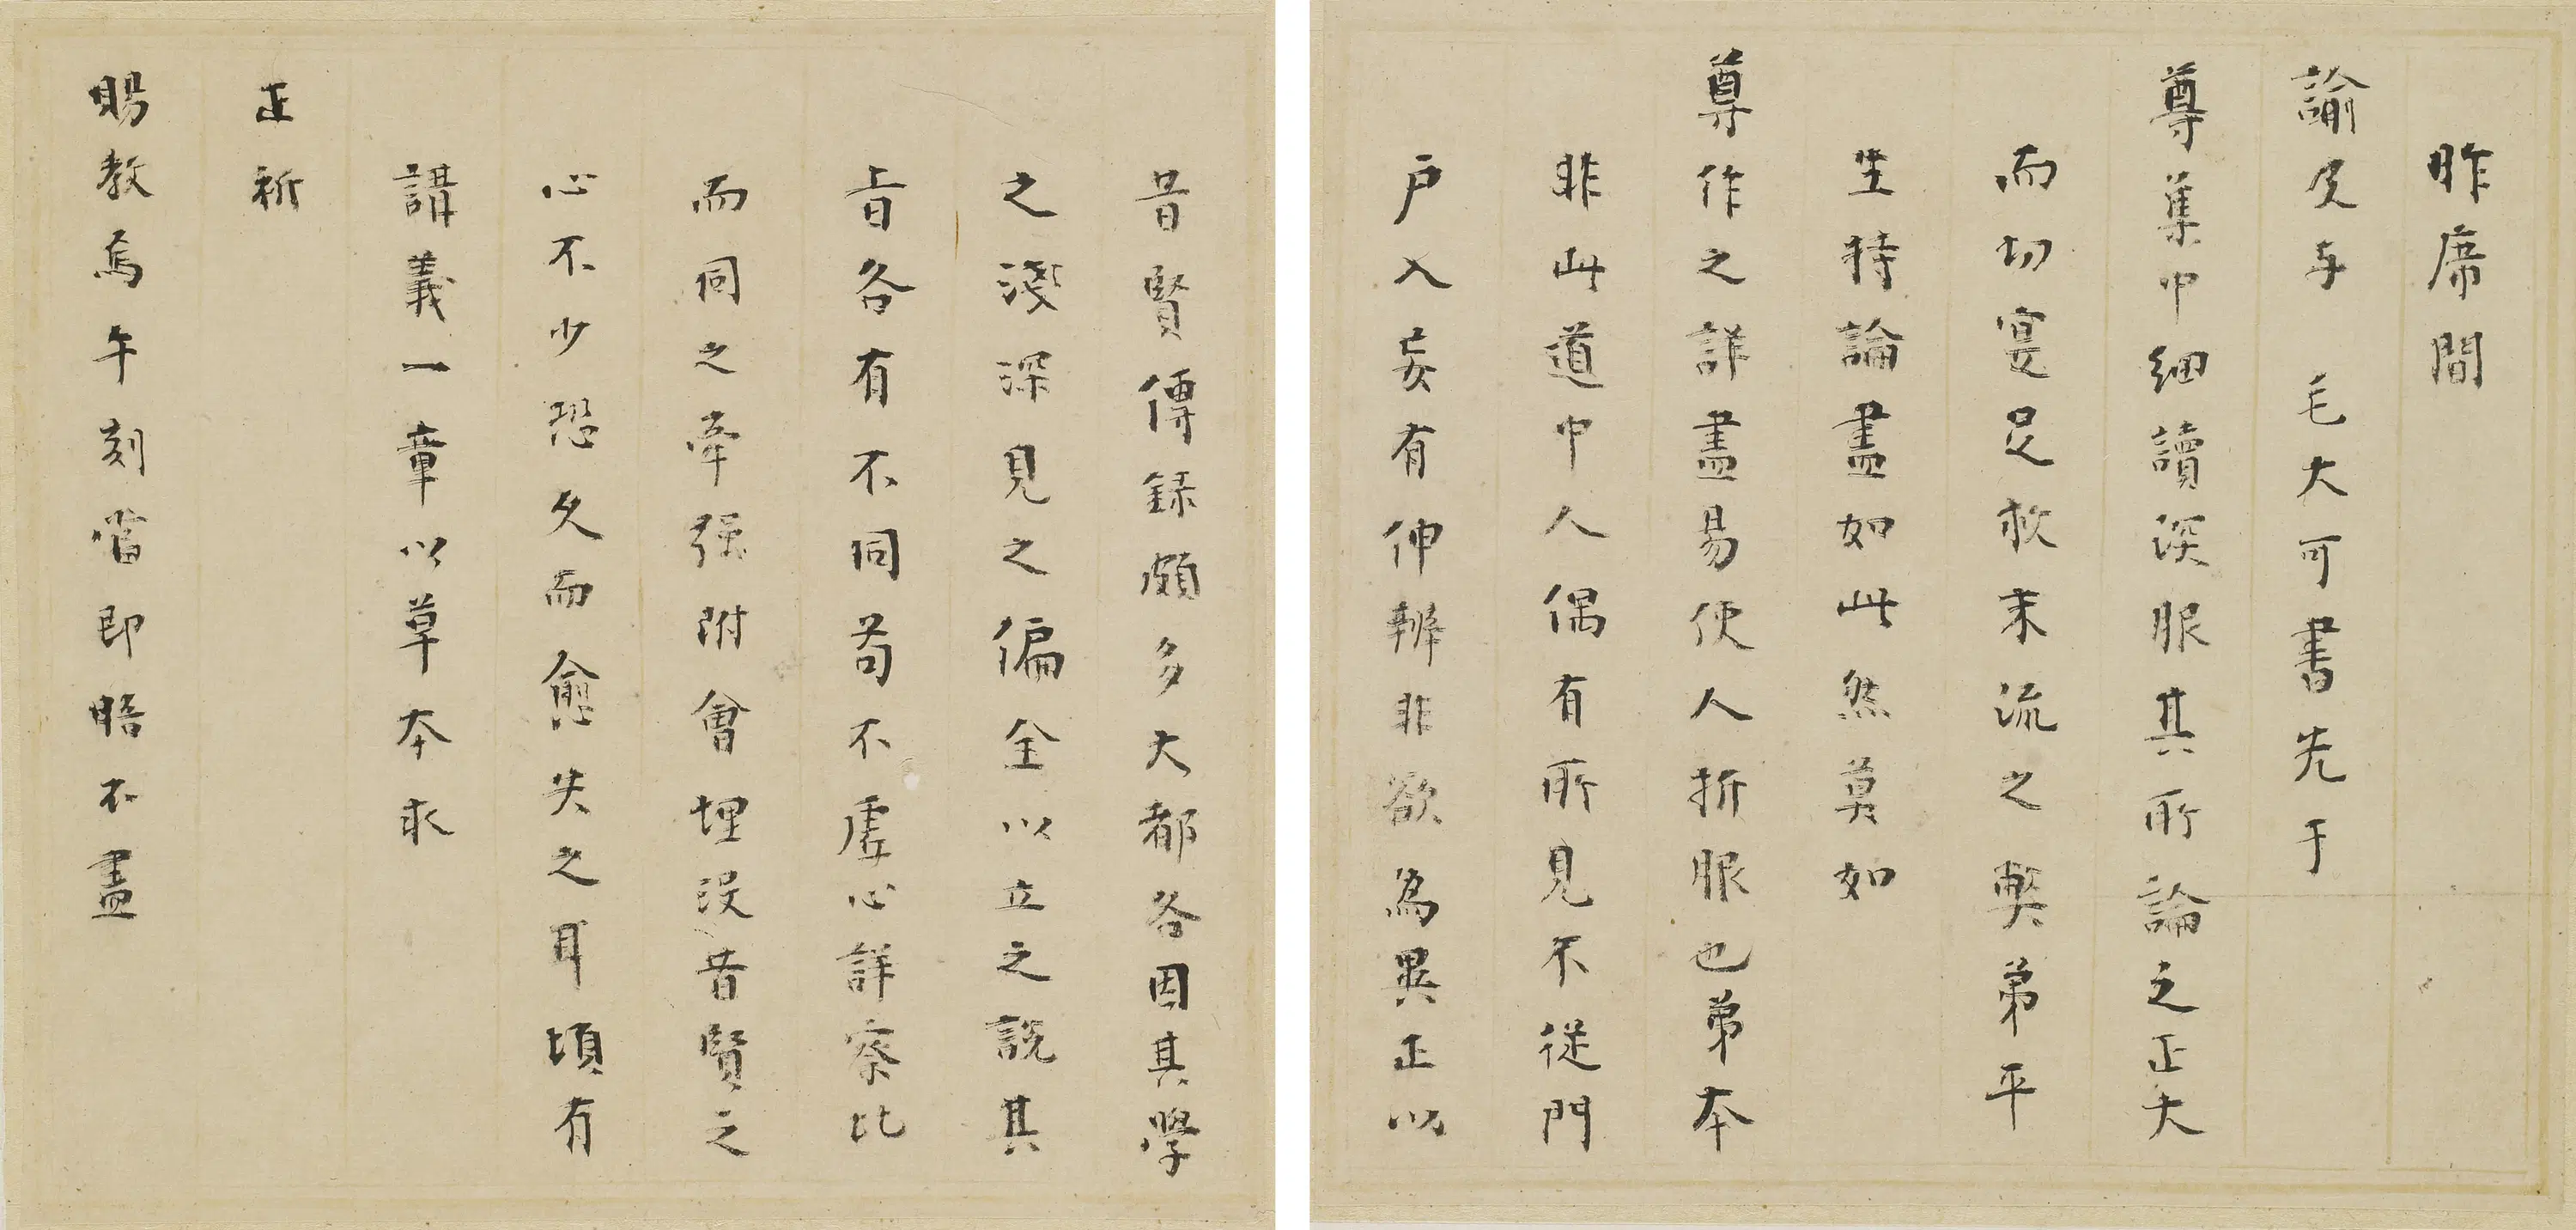 昨席間
諭及与 毛大可書先于
尊集中細讀深服其所論之正大
而切寔足救末流之弊弟平
生持論盡如此然莫如
尊作之詳盡易使人折服也弟本
非此道中人偶有所見不從門
戶入妄有伸辨非欲為異正以
昔賢傳録頗多大都各因其學
之淺深見之偏全以立之說其
旨各有不同苟不虛心詳察比
而同之牽强附會埋没昔賢之
心不少恐久而愈失之耳頃有
講義一章以草本求
正祈
賜教為午刻當即晤不盡